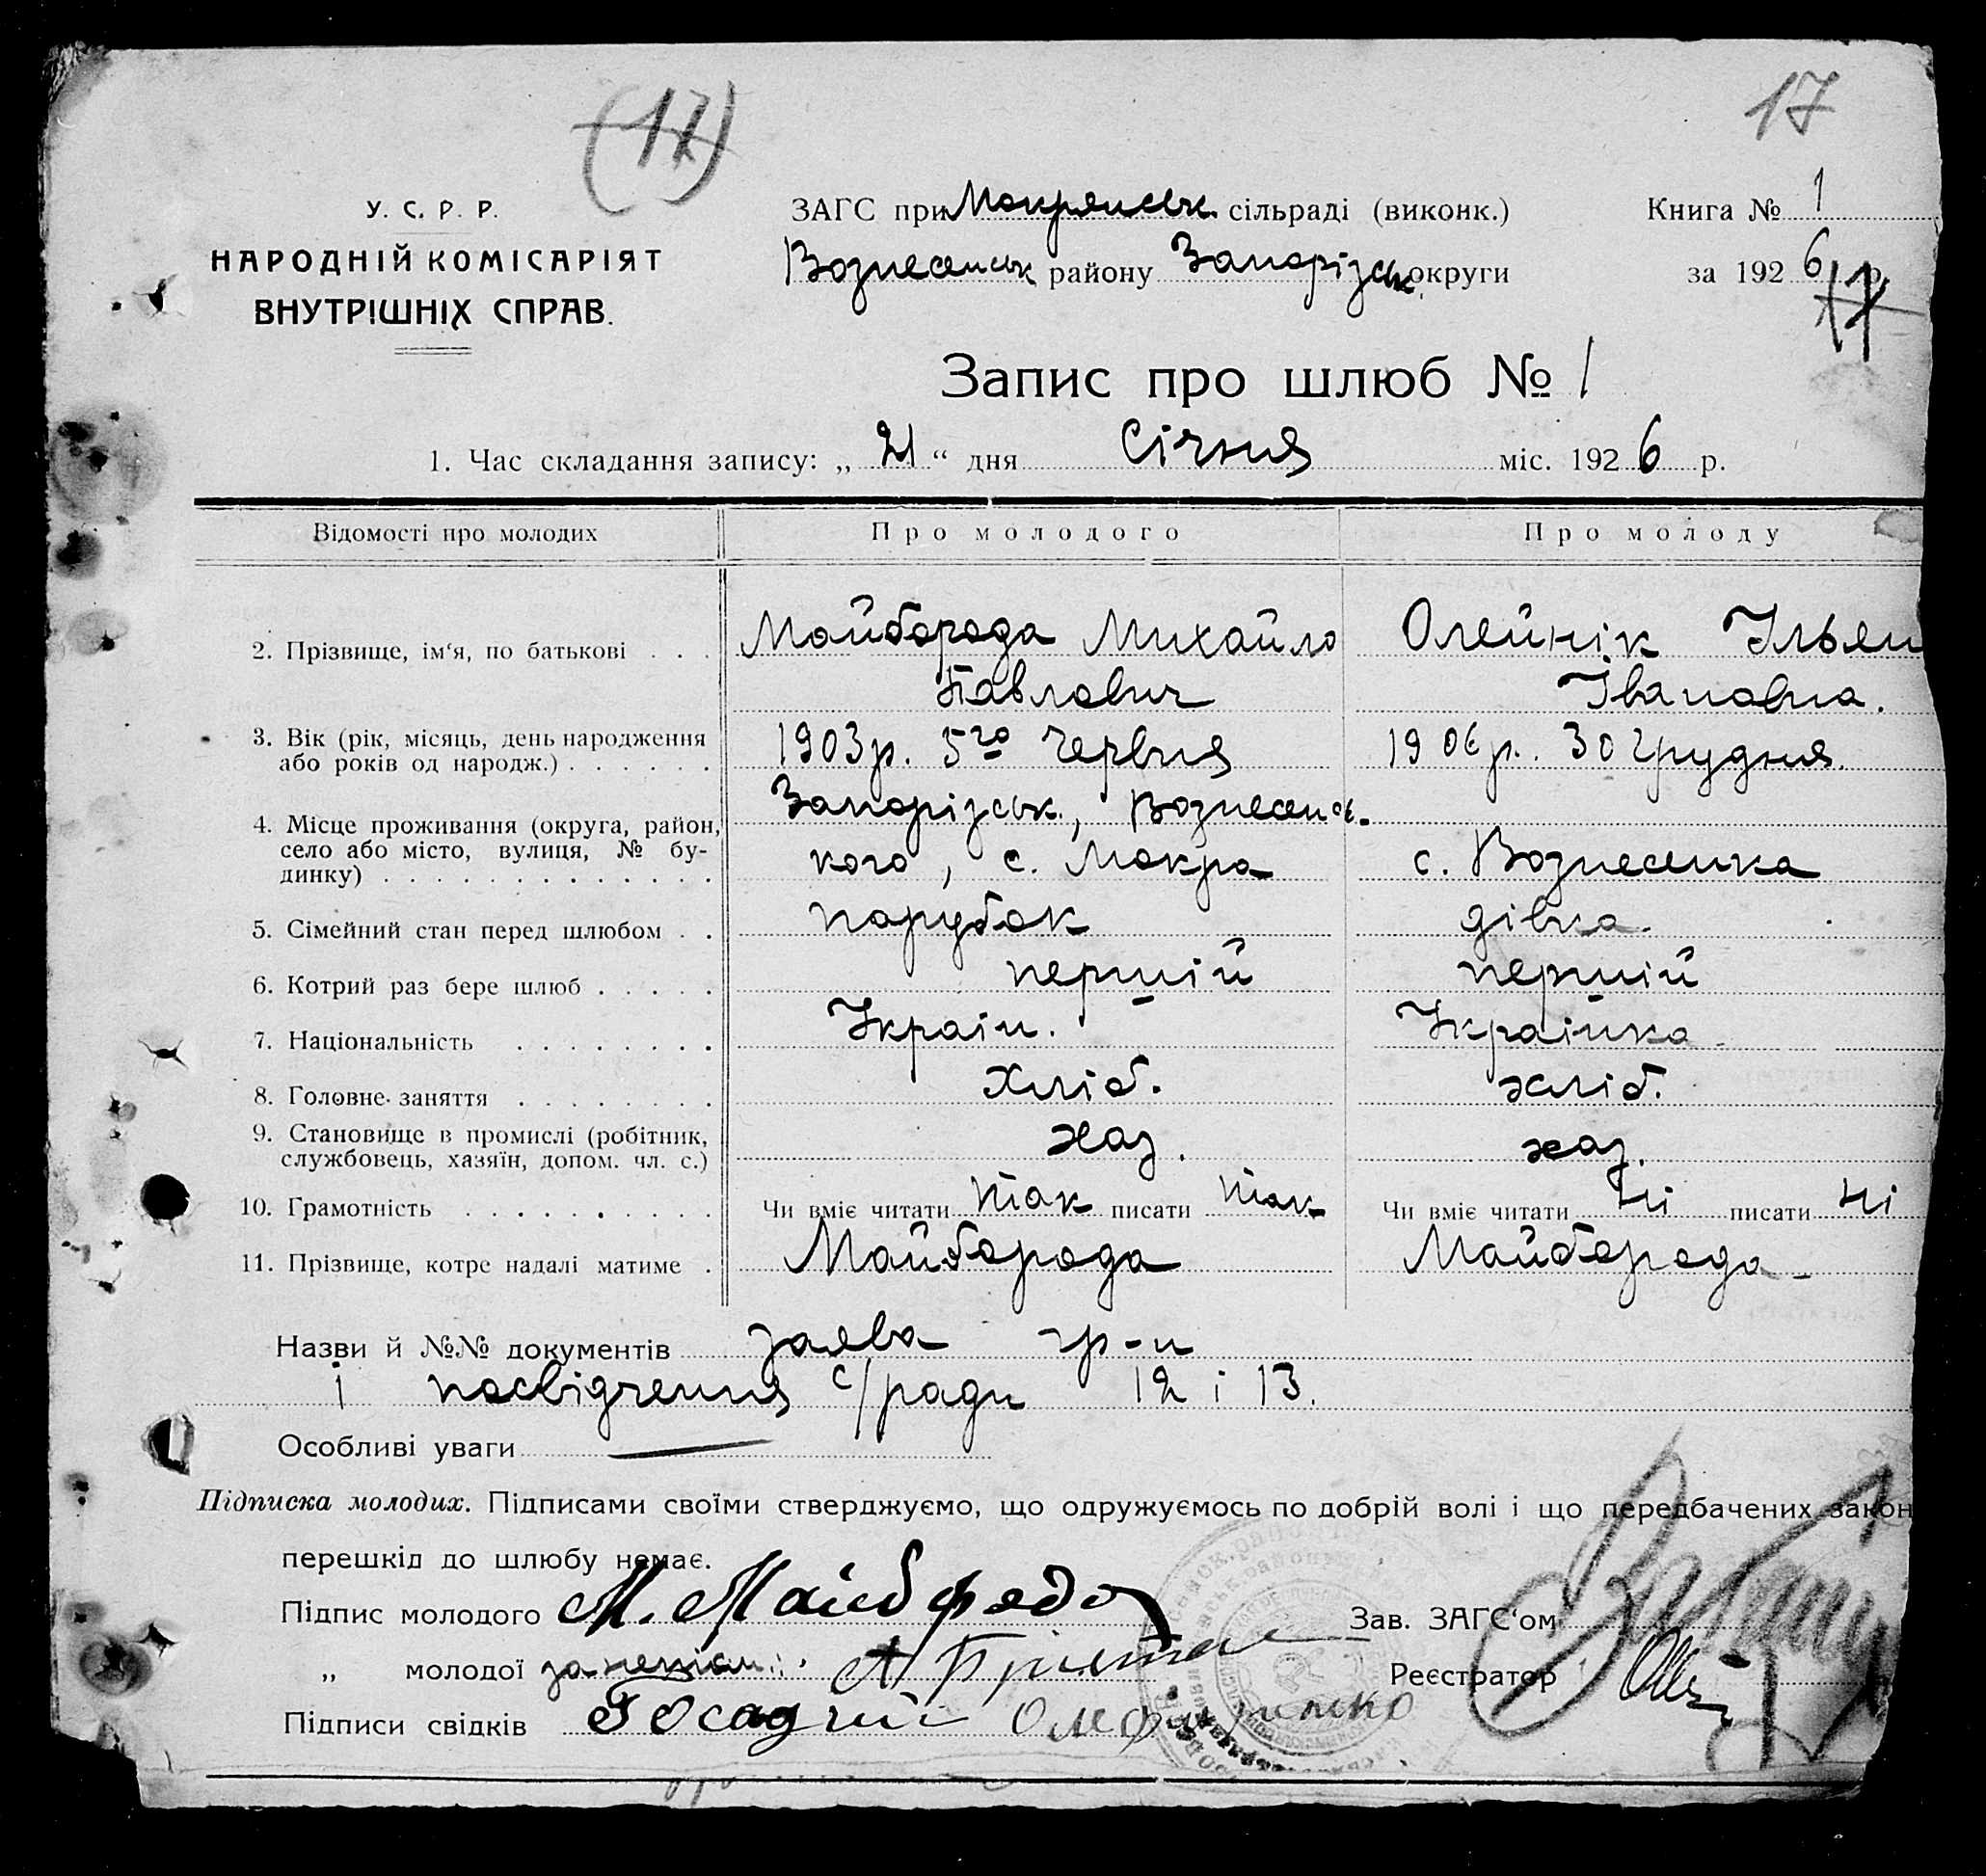 (17) 17
У. С. Р. Р.
НАРОДНІЙ КОМІСАРІЯТ
ВНУТРІШНІХ СПРАВ.
ЗАГС при Мокрянськ. сільраді (виконк.) Книга № 1
Вознесенськ району Запорізськ. округи за 1926 р.
17
Запис про шлюб № 1
1. Час складання запису: „ 21 “ дня Січня міс. 1926 р.
Відомості про молодих Про молодого Про молоду
2. Прізвище, ім‘я, по батькові . . . Майборода Михайло Олейнік Ільян
Павлович Івановна.
3. Вік (рік, місяць, день народження 1903р. 5го Червня 1906р. 30 Грудня.
або років од народж.) . . . . . .
Запорізськ., Вознесенсь-
4. Місце проживання (округа, район,
село або місто, вулиця, № бу- кого, с. Мокра с. Вознесенка
динку) . . . . . . . . . . . . .
5. Сімейний стан перед шлюбом . . парубок дівка.
6. Котрий раз бере шлюб . . . . . першій першій
7. Національність . . . . . . . . Україн. Українка
8. Головне заняття . . . . . . . . Хліб. хліб.
9. Становище в промислі (робітник, хаз. хаз.
службовець, хазяїн, допом. чл. с.)
10. Грамотність . . . . . . . . . . Чи вміє читати так писати так Чи вміє читати ні писати ні
11. Прізвище, котре надалі матиме . Майборода Майборода
Назви й №№ документів заява гр-н
і посвідчення с/ради 12 і 13.
Особливі уваги —
Підписка молодих. Підписами своїми стверджуємо, що одружуємось по добрій волі і що передбачених закон
перешкід до шлюбу немає.
Підпис молодого М. Майборода Зав. ЗАГС‘ом
„ молодої за Реєстратор
Підписи свідків Осадчий